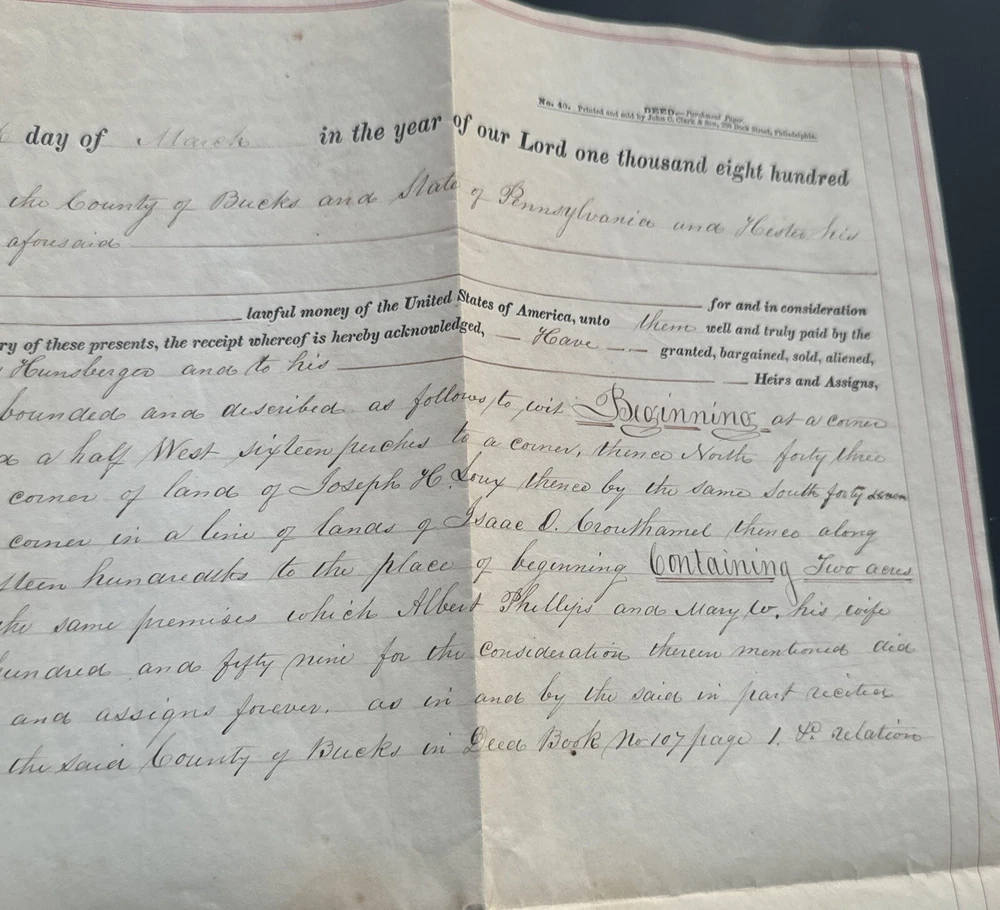 No. 40. Printed and sold by John C. Clark & Son, 230 Dock Street, Philadelphia.
DEED.—Parchment Paper.
day of March in the year of our Lord one thousand eight hundred
the County of Bucks and State of Pennsylvania and Hester his
aforesaid
lawful money of the United States of America, unto them well and truly paid by the
for and in consideration
ry of these presents, the receipt whereof is hereby acknowledged, Have granted, bargained, sold, aliened,
Hunsberger and to his Heirs and Assigns,
bounded and described as follows, to wit Beginning at a corner
a half West sixteen perches to a corner, thence North forty three
corner of land of Joseph H. Loux thence by the same South forty seven
corner in a line of lands of Isaac O. Crouthamel thence along
teen hundredths to the place of beginning Containing Two acres
the same premises which Albert Phillips and Mary W. his wife
hundred and fifty nine for the consideration therein mentioned did
and assigns forever. as in and by the said in part recited
the said County of Bucks in Deed Book No 107 page 1. relation